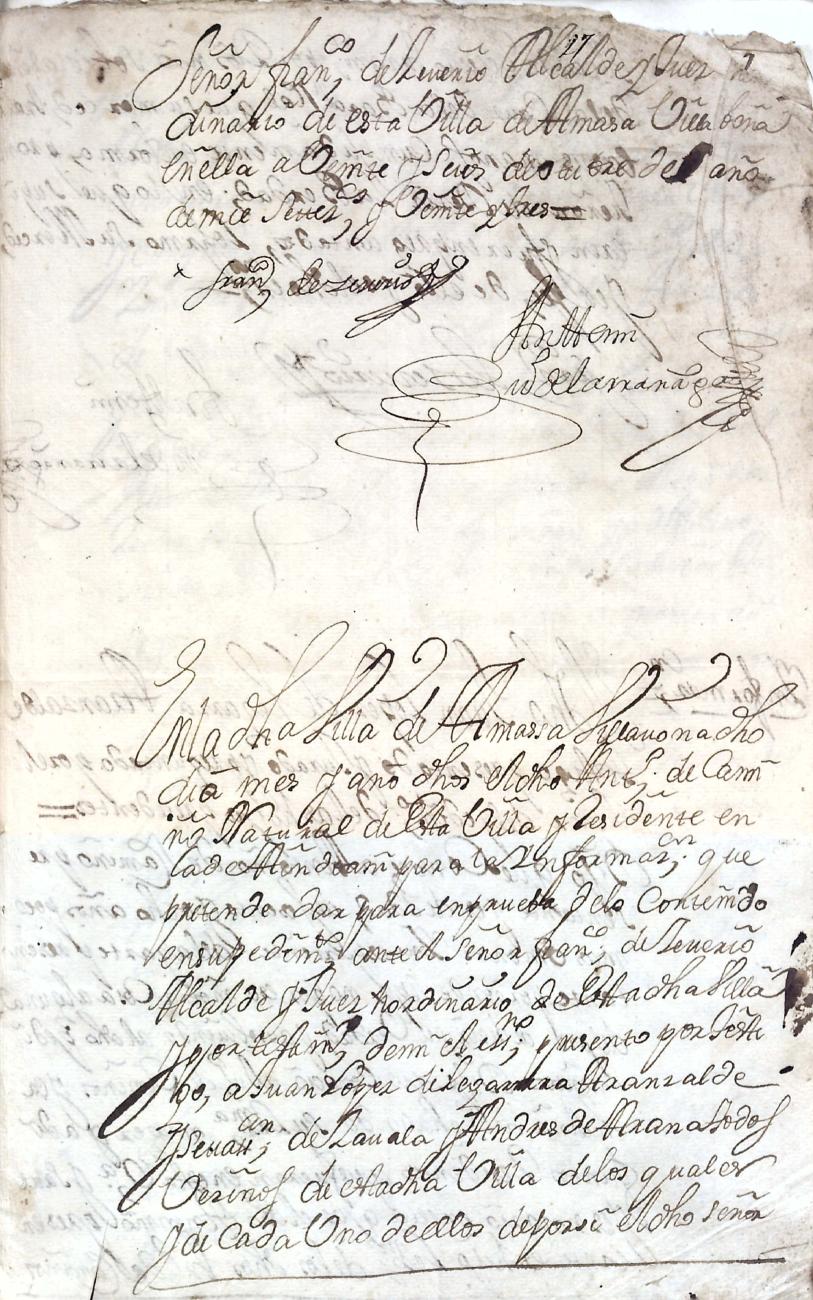 17
Señor fran.co de Zeverio Alcalde y Juez
dinario de esta Villa de Amasa Villa bona
en ella a Veinte y seis de octubre del año
de mill setez.os y Veinte y tres =
fran.co de zeverio
Ante mi
de larrañaga
En la dha Villa de Amassa Villavona dho
dia mes y año dhos el dho Ant.o de Cami
no Natural de esta Villa y residente en
la de Andoain para la Informaz.on que
pretende dar para en prueba de lo Contenido
en su pedim.to ante el Señor fran.co de Zeverio
Alcalde y Juez hordinario de esta dha Villa
y por testim.o de mi el ess.no presento por testi
go, a Juan Lopez de legarra Aranzalde
y Sevast.an de Zavala y Andres de Arana todos
Vezinos de esta dha Villa de los quales
y de Cada Uno de ellos de por si el dho señor